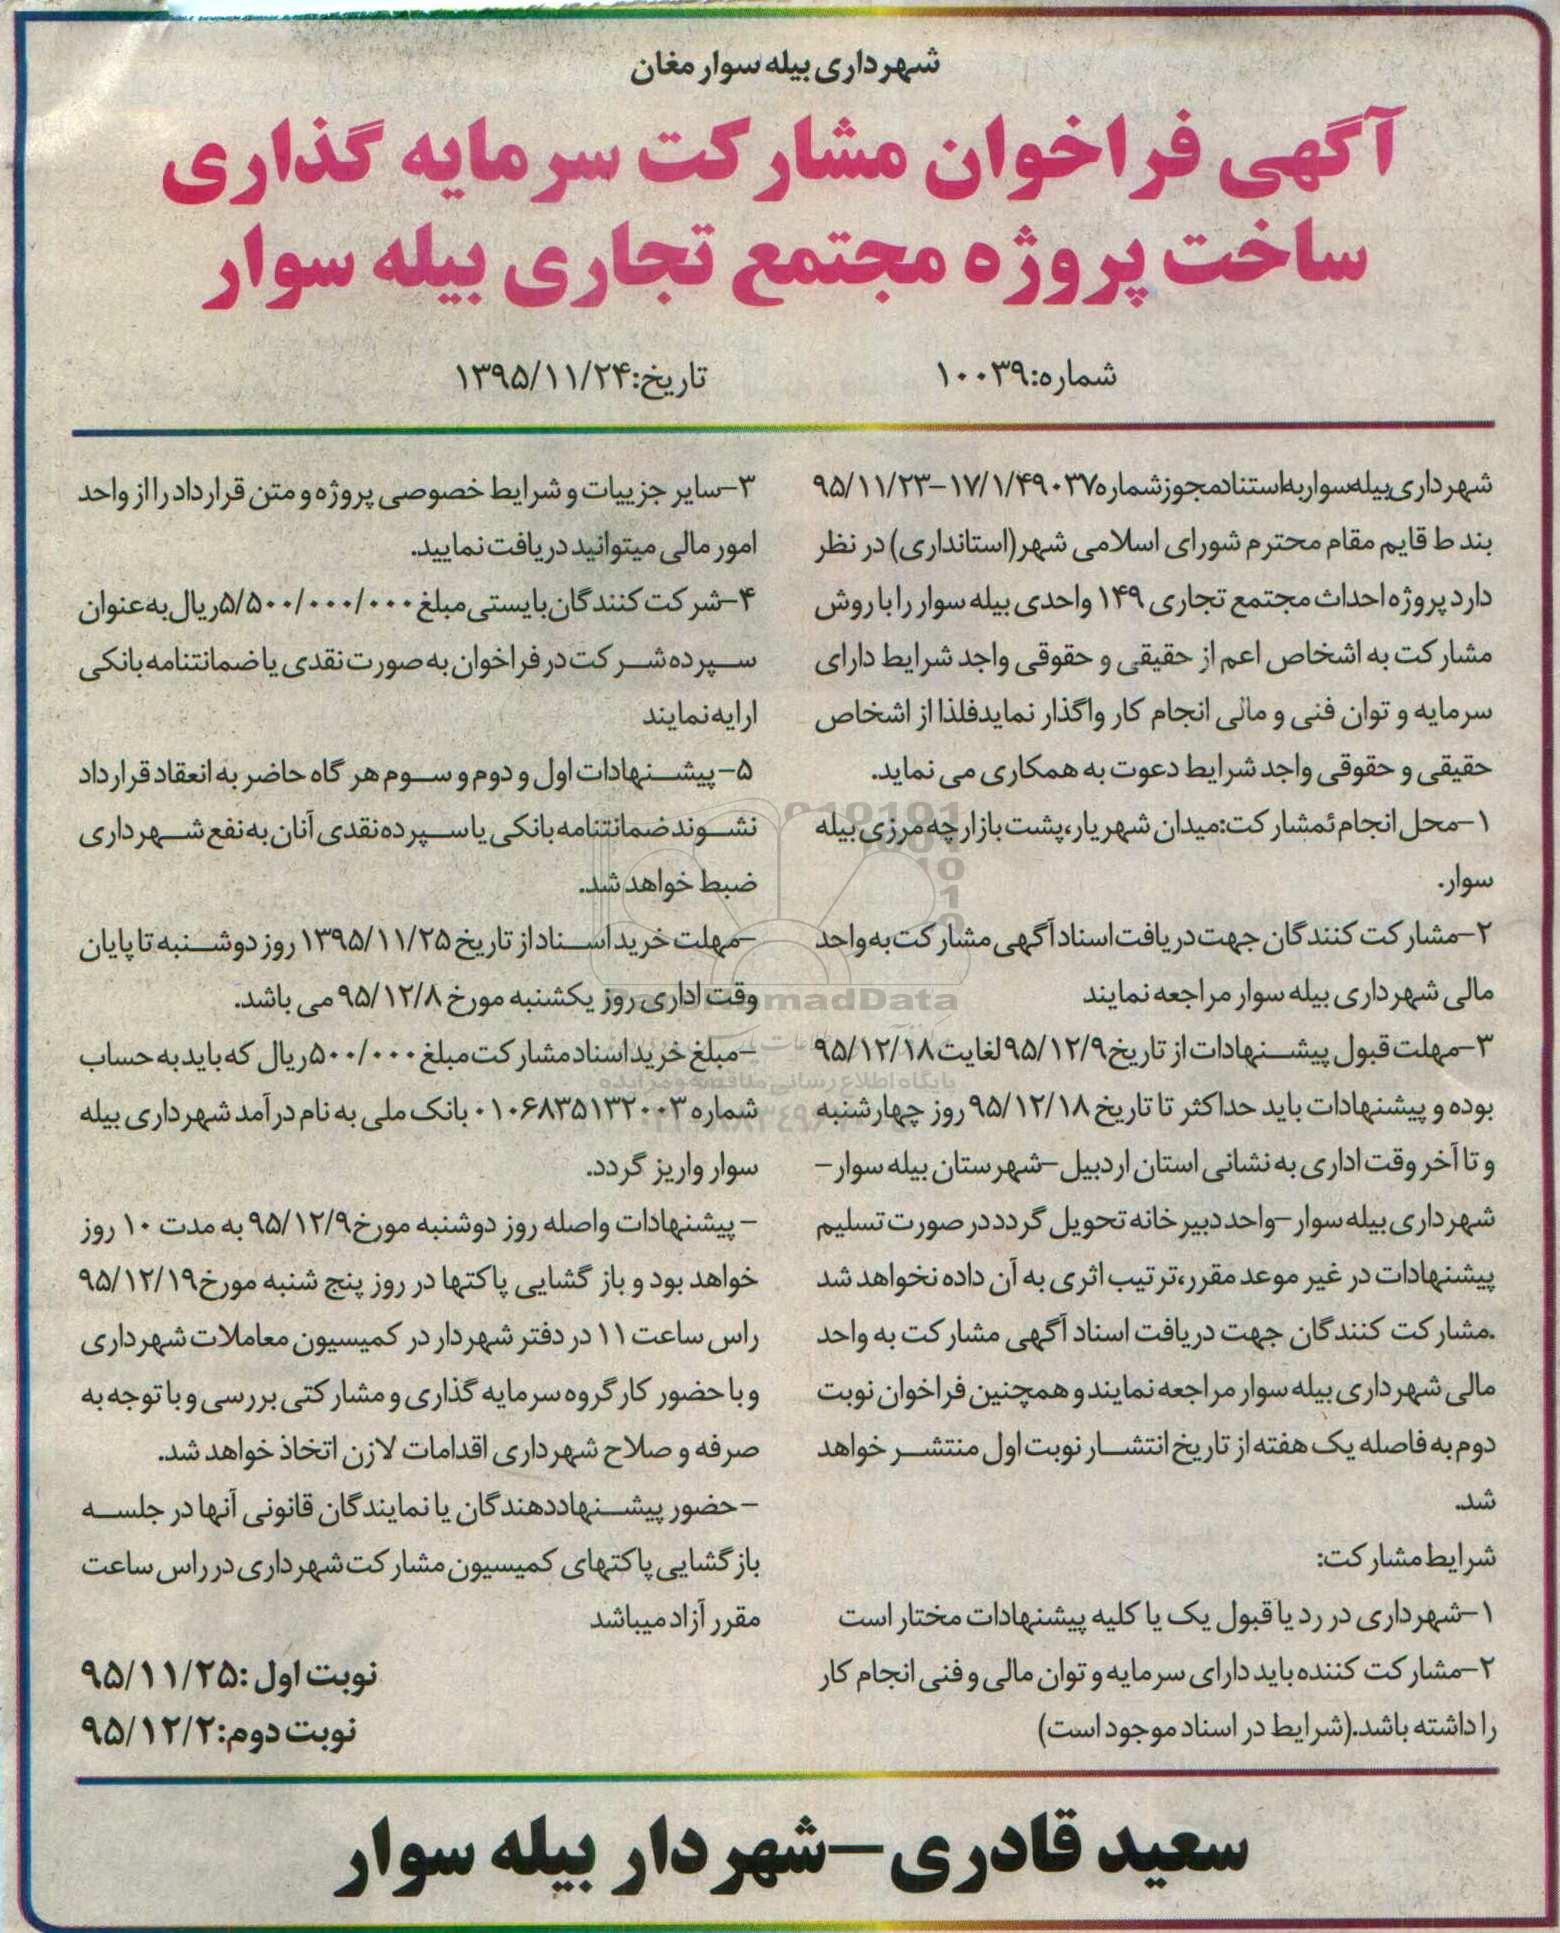 شهرداری بیله سوار مغان
آگهی فراخوان مشارکت سرمایه گذاری
ساخت پروژه مجتمع تجاری بیله سوار
شماره:۱۰۰۳۹
تاریخ:۱۳۹۵/۱۱/۲۴
شهرداری بیله سوار به استناد مجوز شماره ۱۷/۱/۴۹۰۳۷-۹۵/۱۱/۲۳
بند ط قایم مقام محترم شورای اسلامی شهر(استانداری) در نظر
دارد پروژه احداث مجتمع تجاری ۱۴۹ واحدی بیله سوار را با روش
مشارکت به اشخاص اعم از حقیقی و حقوقی واجد شرایط دارای
سرمایه و توان فنی و مالی انجام کار واگذار نماید فلذا از اشخاص
حقیقی و حقوقی واجد شرایط دعوت به همکاری می نماید.
۱-محل انجام ئمشارکت:میدان شهریار،پشت بازارچه مرزی بیله
سوار.
۲-مشارکت کنندگان جهت دریافت اسناد آگهی مشارکت به واحد
مالی شهرداری بیله سوار مراجعه نمایند
۳-مهلت قبول پیشنهادات از تاریخ ۹۵/۱۲/۹ لغایت ۹۵/۱۲/۱۸
بوده و پیشنهادات باید حداکثر تا تاریخ ۹۵/۱۲/۱۸ روز چهارشنبه
و تا آخر وقت اداری به نشانی استان اردبیل-شهرستان بیله سوار-
شهرداری بیله سوار-واحد دبیرخانه تحویل گردد در صورت تسلیم
پیشنهادات در غیر موعد مقرر،ترتیب اثری به آن داده نخواهد شد
.مشارکت کنندگان جهت دریافت اسناد آگهی مشارکت به واحد
مالی شهرداری بیله سوار مراجعه نمایند و همچنین فراخوان نوبت
دوم به فاصله یک هفته از تاریخ انتشار نوبت اول منتشر خواهد
شد.
شرایط مشارکت:
۱-شهرداری در رد یا قبول یک یا کلیه پیشنهادات مختار است
۲-مشارکت کننده باید دارای سرمایه و توان مالی و فنی انجام کار
را داشته باشد.(شرایط در اسناد موجود است)
۳-سایر جزییات و شرایط خصوصی پروژه و متن قرارداد را از واحد
امور مالی میتوانید دریافت نمایید.
۴-شرکت کنندگان بایستی مبلغ ۵/۵۰۰/۰۰۰/۰۰۰ ریال به عنوان
سپرده شرکت در فراخوان به صورت نقدی یا ضمانتنامه بانکی
ارایه نمایند
۵-پیشنهادات اول و دوم و سوم هر گاه حاضر به انعقاد قرارداد
نشوند ضمانتنامه بانکی یا سپرده نقدی آنان به نفع شهرداری
ضبط خواهد شد.
-مهلت خرید اسناد از تاریخ ۱۳۹۵/۱۱/۲۵ روز دوشنبه تا پایان
وقت اداری روز یکشنبه مورخ ۹۵/۱۲/۸ می باشد.
-مبلغ خرید اسناد مشارکت مبلغ ۵۰۰/۰۰۰ ریال که باید به حساب
شماره ۰۱۰۶۸۳۵۱۳۲۰۰۳ بانک ملی به نام درآمد شهرداری بیله
سوار واریز گردد.
- پیشنهادات واصله روز دوشنبه مورخ ۹۵/۱۲/۹ به مدت ۱۰ روز
خواهد بود و باز گشایی پاکتها در روز پنج شنبه مورخ ۹۵/۱۲/۱۹
راس ساعت ۱۱ در دفتر شهردار در کمیسیون معاملات شهرداری
و با حضور کارگروه سرمایه گذاری و مشارکتی بررسی و با توجه به
صرفه و صلاح شهرداری اقدامات لازن اتخاذ خواهد شد.
-حضور پیشنهاددهندگان یا نمایندگان قانونی آنها در جلسه
بازگشایی پاکتهای کمیسیون مشارکت شهرداری در راس ساعت
مقرر آزاد میباشد
نوبت اول :۹۵/۱۱/۲۵
نوبت دوم:۹۵/۱۲/۲
سعید قادری-شهردار بیله سوار
پایگاه اطلاع رسانی مناقصه و مزایده